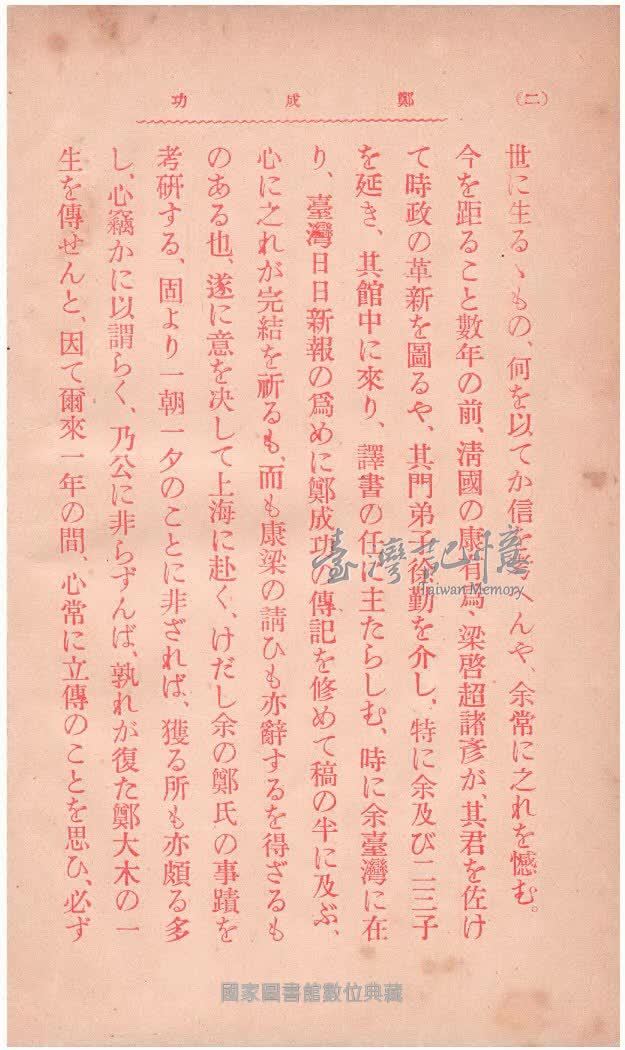 (二)
鄭成功
世に生るゝもの、何を以てか信を考へんや、余常に之れを憾む。
今を距ること數年の前、清國の康有爲、梁啓超諸彥が、其君を佐け
て時政の革新を圖るや、其門弟子徐勤を介し、特に余及び二三子
を延き、其館中に來り、譯書の任に主たらしむ、時に余臺灣に在
り、臺灣日日新報の爲めに鄭成功の傳記を修めて稿の半に及ぶ、
心に之れが完結を祈るも、而も康梁の請ひも亦辭するを得ざるも
のある也、遂に意を決して上海に赴く、けだし余の鄭氏の事蹟を
考硏する、固より一朝一夕のことに非ざれば、獲る所も亦頗る多
し、心竊かに以謂らく、乃公に非らずんば、孰れが復た鄭大木の一
生を傳せんと、因て爾來一年の間、心常に立傳のことを思ひ、必ず
臺灣記憶
Taiwan Memory
國家圖書館數位典藏